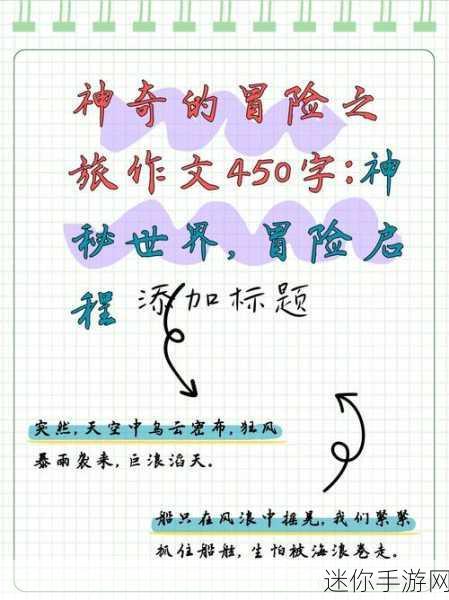 神奇的冒险之
旅作文450字:神
秘世界,冒险启
程
添加标题
突然,天空中乌云密布,狂风
暴雨袭来,巨浪滔天。
船只在风浪中摇晃,我们紧紧
抓住船舷,生怕被海浪卷走。
迷你手游网